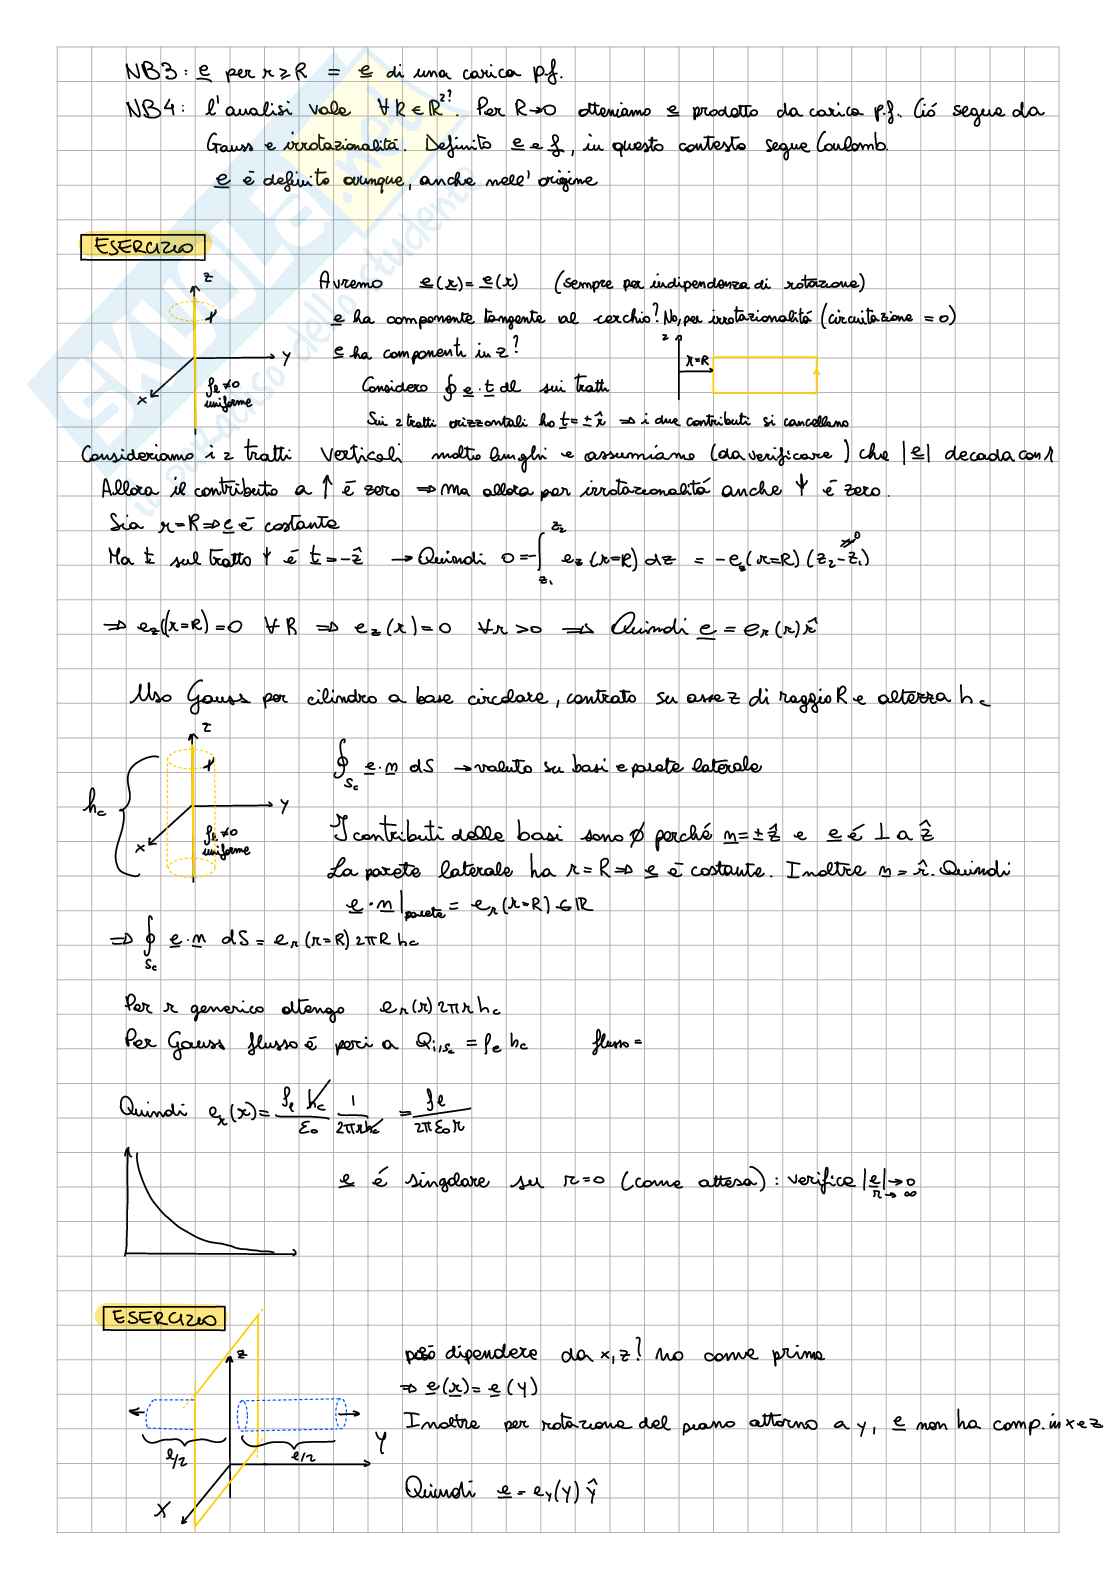 NB3: e per r≥R = e di una carica p.f.
NB4: l'analisi vale ∀R∈ℝ²?. Per R→0 otteniamo e prodotto da carica p.f. Ció segue da
Gauss e irrotazionalità. Definito e e f, in questo contesto segue Coulomb.
e è definito ovunque, anche nell'origine
ESERCIZIO
Avremo e(r)=e(r) (sempre per indipendenza di rotazione)
e ha componente tangente al cerchio? No, per irrotazionalità (circuitazione = 0)
e ha componenti in z?
Considero ∮ e·t dl sui tratti
Sui 2 tratti orizzontali ho t=±r̂ ⇒ i due contributi si cancellano
z
y
x
ρe≠0
uniforme
z
r=R
Consideriamo i 2 tratti verticali molto lunghi e assumiamo (da verificare) che |e| decada con r
Allora il contributo a ↑ è zero ⇒ ma allora per irrotazionalità anche ↓ è zero.
Sia r=R⇒ e è costante
Ma t sul tratto ↓ è t=-ẑ → Quindi 0=-∫z₁^z₂ ez(r=R) dz = -ez(r=R)(z₂-z₁) ≠0
⇒ ez(r=R)=0 ∀R ⇒ ez(r)=0 ∀r>0 ⇒ Quindi e = er(r)r̂
Uso Gauss per cilindro a base circolare, centrato su asse z di raggio R e altezza hc
z
y
x
hc
ρe≠0
uniforme
∮Sc e·n dS → valuto su basi e parete laterale
I contributi delle basi sono ∅ perché n=±ẑ e e è ⊥ a ẑ
La parete laterale ha r=R⇒ e è costante. Inoltre n=r̂. Quindi
e·n|parete = er(r=R) ∈ℝ
⇒ ∮Sc e·n dS = er(r=R) 2πR hc
Per r generico ottengo er(r) 2πr hc
Per Gauss flusso è pari a Qi,Sc = ρe hc flusso =
Quindi er(r)= ρe hc/ε₀ 1/2πr hc = ρe/2πε₀r
e è singolare su r=0 (come attesa): verifica |e|→0 r→∞
ESERCIZIO
z
Y
X
l/2
l/2
può dipendere da x,z? no come prima
⇒ e(r)=e(y)
Inoltre per rotazione del piano attorno a y, e non ha comp. in x e z
Quindi e = ey(y) ŷ
SKUOLA.net
il paradiso dello studente